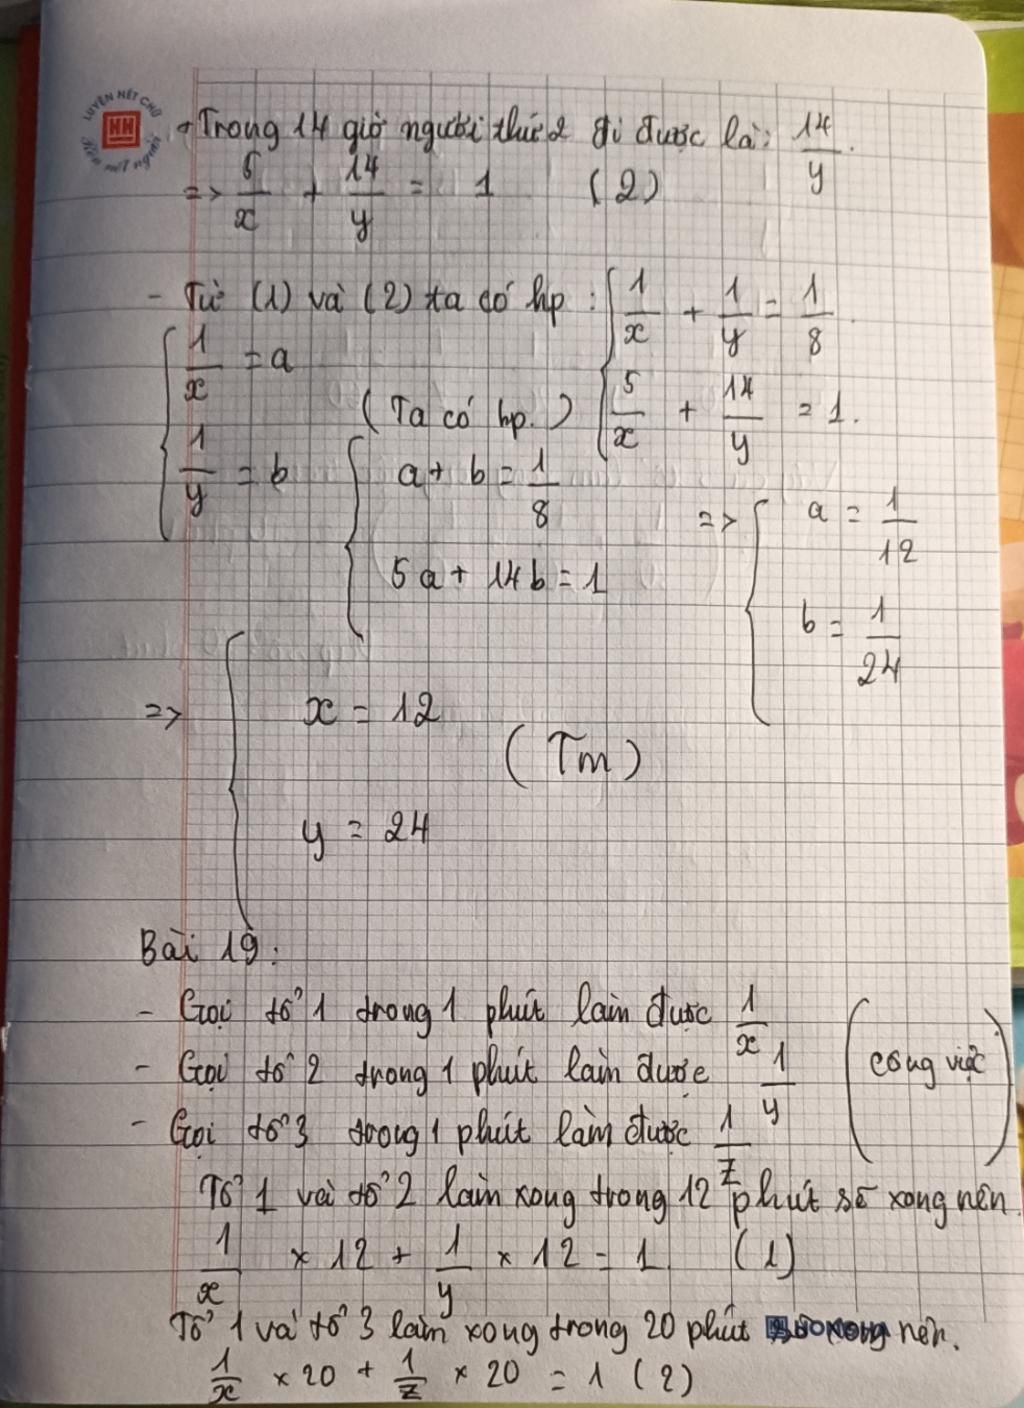 LUYỆN NÉT CHỮ
HH
Rèn nết người
+ Trong 14 giờ người thứ 2 đi được là: 14/y.
=> 5/x + 14/y = 1 (2)
- Từ (1) và (2) ta có hp : { 1/x + 1/y = 1/8.
5/x + 14/y = 1.
{ 1/x = a
1/y = b
(Ta có hp.)
{ a + b = 1/8
5a + 14b = 1
=> { a = 1/12
b = 1/24
=> { x = 12
y = 24
(Tm)
Bài 19:
- Gọi tổ 1 trong 1 phút làm được 1/x
- Gọi tổ 2 trong 1 phút làm được 1/y
- Gọi tổ 3 trong 1 phút làm được 1/z
(công việc)
Tổ 1 và tổ 2 làm xong trong 12 phút sẽ xong nên.
1/x × 12 + 1/y × 12 = 1 (1)
Tổ 1 và tổ 3 làm xong trong 20 phút nên.
1/x × 20 + 1/z × 20 = 1 (2)